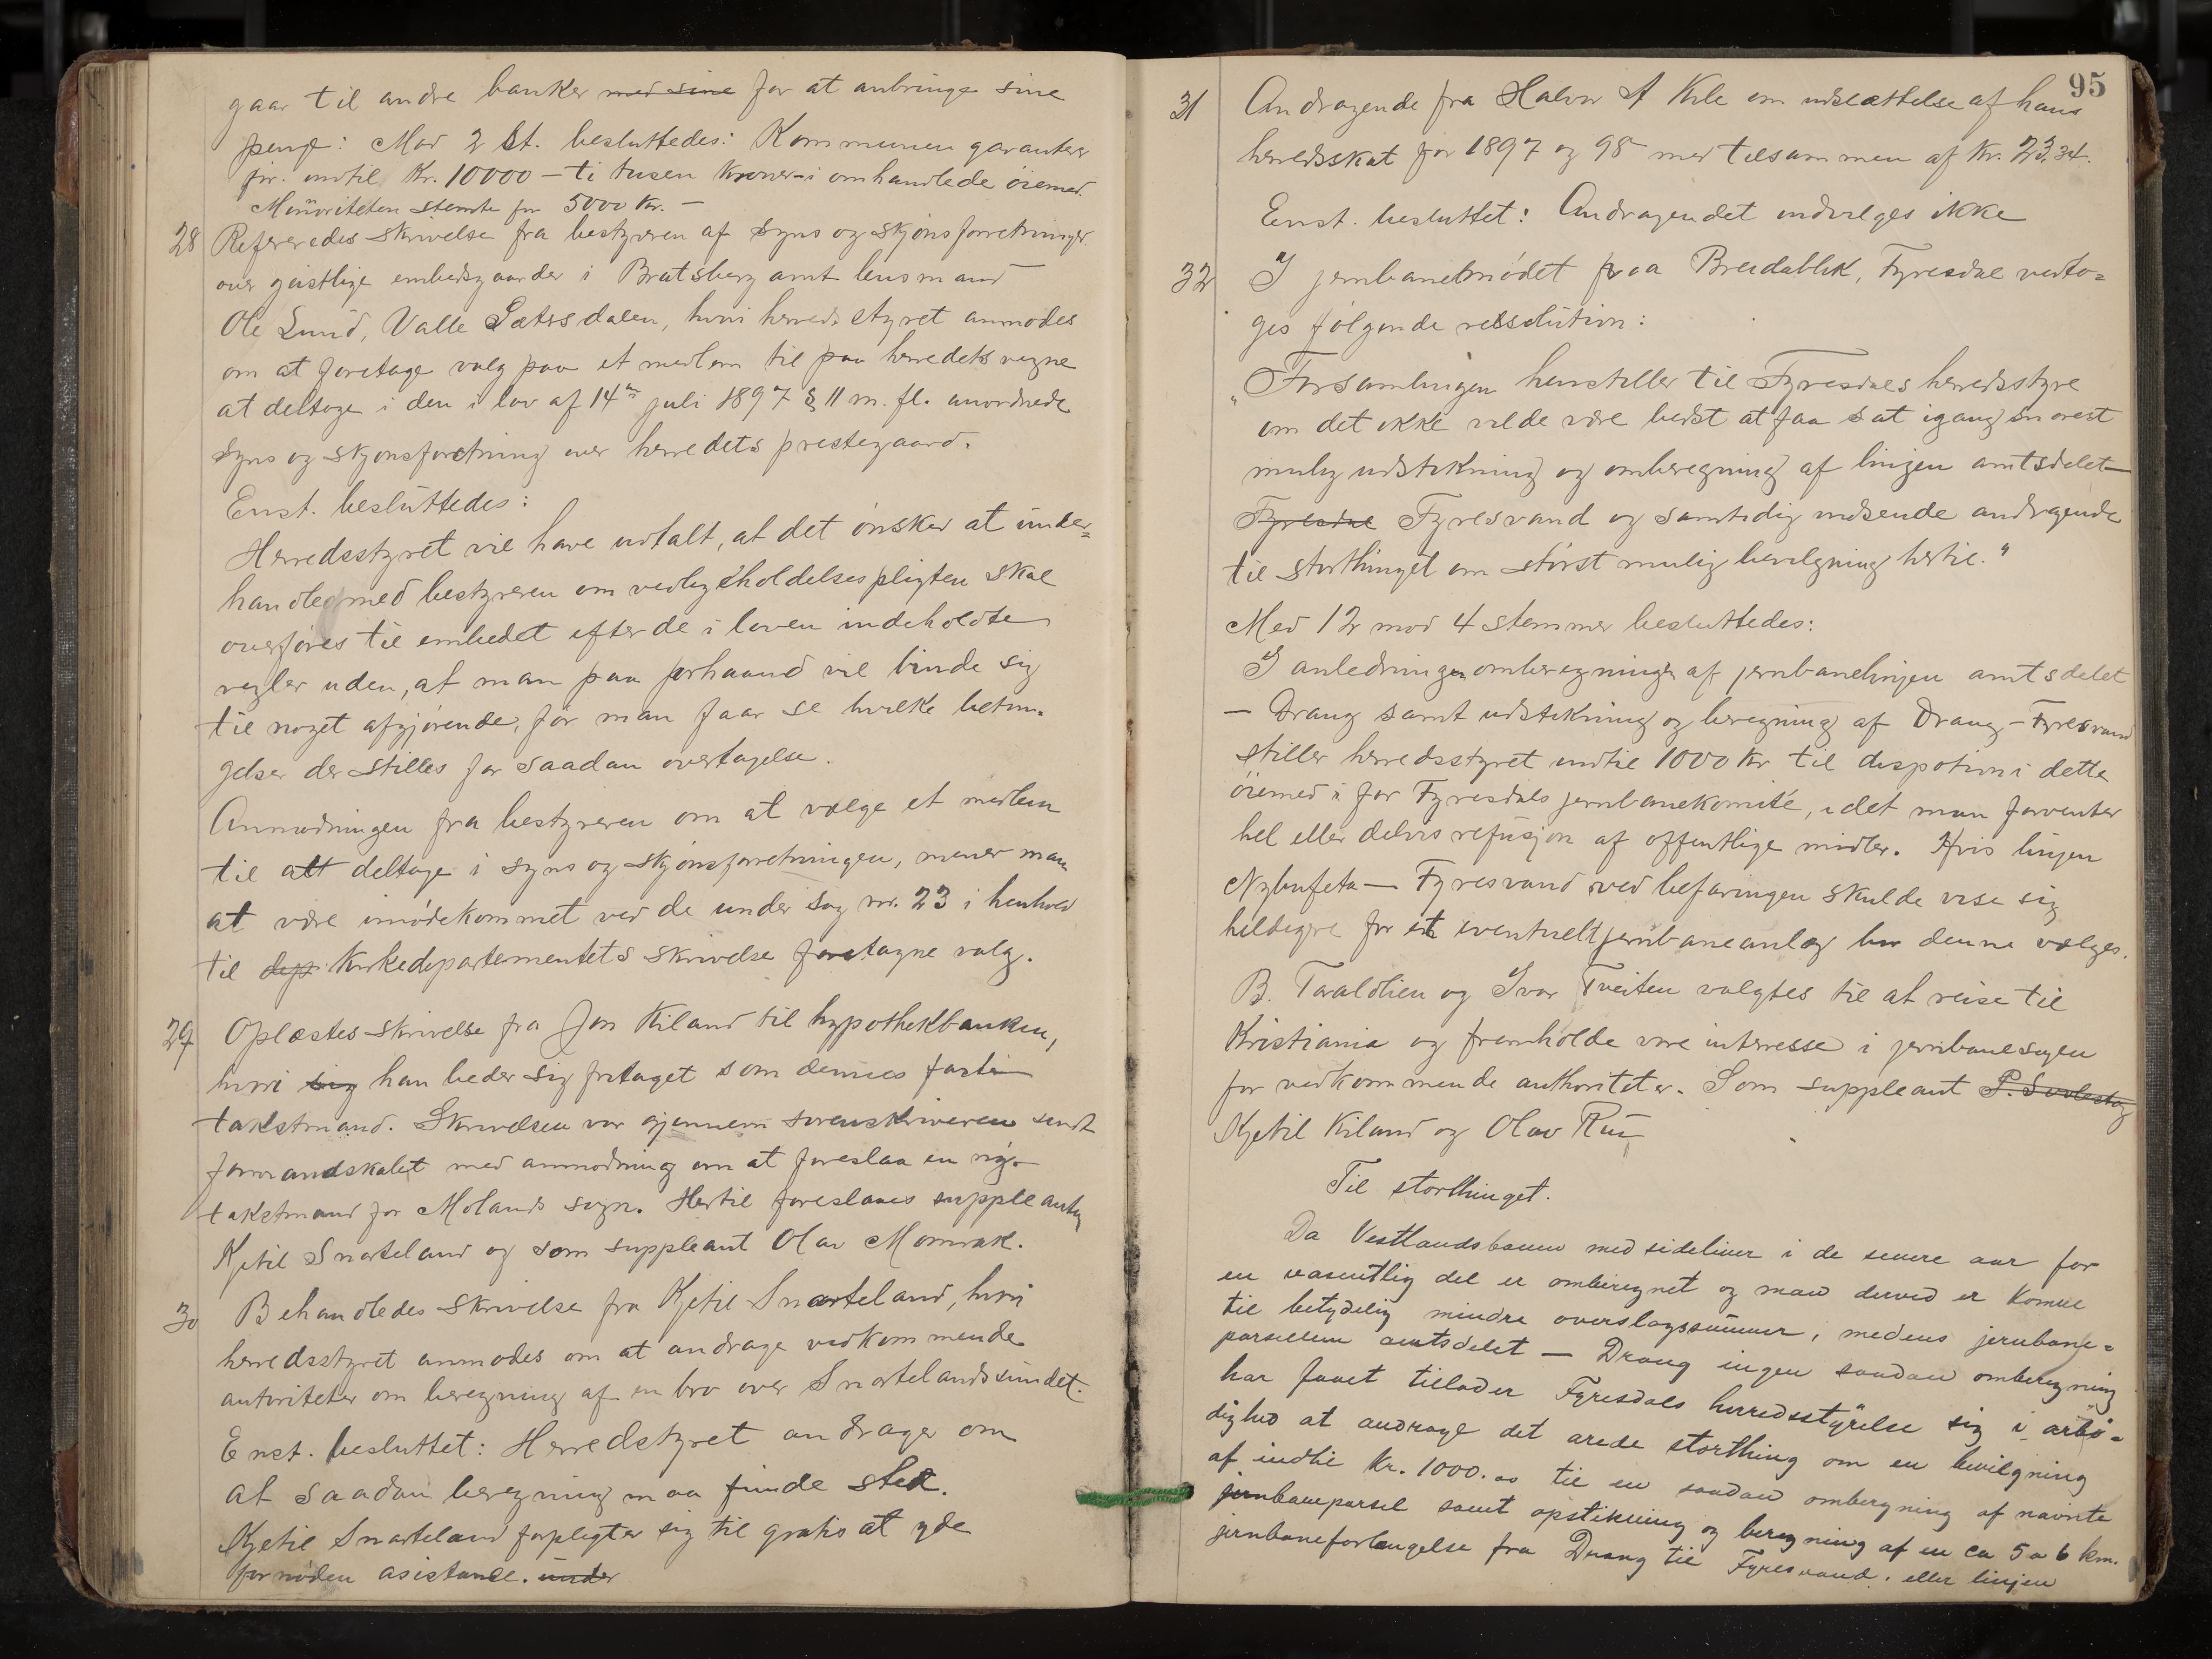 gaar til andre banker med sine for at anbringe sine
penge: Mod 2 St. besluttedes: Kommunen garanterer
for indtil Kr. 10000 – ti tusen Kroner – i omhandlede öiemed.
Minoriteten stemte for 5000 Kr. –
28 Refereredes skrivelse fra bestyreren af syns og skjönsforretninger
over geistlige embedsgaarder i Bratsberg amt lensmand
Ole Lund, Valle Sætersdalen, hvori herredsstyret anmodes
om at foretage valg paa et medlem til paa herredets vegne
at deltage i den i lov af 14de juli 1897 § 11 m. fl. anordnede
syns og skjönsforretning over herredets prestegaard.
Enst. besluttedes:
Herredsstyret vil have udtalt, at det önsker at under=
handle med bestyreren om vedligeholdelsespligten skal
overföres til embedet efter de i loven indeholdte
regler uden, at man paa forhaand vil binde sig
til noget afgjörende, för man faar se hvilke betin-
gelser der stilles for saadan overtagelse.
Anmodningen fra bestyreren om at vælge et medlem
til att deltage i syns og skjönsforretningen, mener man
at være imödekommet ved de under sag nr. 23 i henhold
til dep. Kirkedepartementets skrivelse foretagne valg.
29 Oplæstes skrivelse fra Jon Kiland til hypothekbanken,
hvori sig han beder sig fritaget som dennes faste
takstmand. Skrivelsen var gjennem sorenskriveren sendt
formandskabet med anmodning om at foreslaa en ny
takstmand for Molands sogn. Hertil foreslaaes suppleanten
Kjetil Snarteland og som suppleant Olav Momrak.
30 Behandledes skrivelse fra Kjetil Snarteland, hvori
herredsstyret anmodes om at andrage vedkommende
autoriteter om beregning af en bro over Snartelandssundet.
Enst. besluttet: Herredstyret andrager om
at saadan beregning maa finde sted.
Kjetil Snarteland forpligter sig til gratis at yde
fornöden asistance. under
95
31 Andragende fra Halvor A Kile om udsættelse af hans
herredsskat for 1897 og 98 med tilsammen af Kr. 23,34.
Enst. besluttet: Andragendet indvilges ikke
32 I jernbanemödet paa Breidablik, Fyresdal vedto=
ges fölgende resolution:
"Forsamlingen henstiller til Fyresdals herredsstyre
om det ikke vilde være bedst at faa sat igang snarest
mulig udstikning og omberegning af linjen amtsdelet –
Fyresdal Fyresvand og samtidig indsende andragende
til storthinget om störst mulig bevilgning hertil."
Med 12 mod 4 stemmer besluttedes:
I anledningen omberegningen af jernbanelinjen amtsdelet
– Drang samt udstikning og beregning af Drang – Fyresvand
stiller herredsstyret indtil 1000 Kr til dispotion i dette
öiemed i for Fyresdals jernbanekomité, idet man forventer
hel eller delvis refusjon af offentlige midler. Hvis linjen
Nybufeta – Fyresvand ved befaringen skulde vise sig
heldigere for et eventuelt jernbaneanlæg bör denne vælges.
B. Taraldlien og Ivar Tveiten valgtes til at reise til
Kristiania og fremholde vore interesse i jernbanesagen
for vedkommende authoriteter. Som suppleant
Kjetil Kiland og Olav Rui
Til storthinget.
Da Vestlandsbanen med sidelinier i de senere aar for
en væsentlig del er omberegnet og man derved er komne
til betydelig mindre overslagssummer, medens jernbane=
parsellen amtsdelet – Drang ingen saadan omberegning
har faaet tillader Fyresdals herredsstyrelse sig i ærbö=
dighed at andrage det ærede storthing om en bevilgning
af indtil Kr. 1000.00 til en saadan omberegning af nævnte
jernbaneparsel samt opstikning og beregning af en ca 5 a 6 km.
jernbaneforlængelse fra Drang til Fyresvand, eller linjen